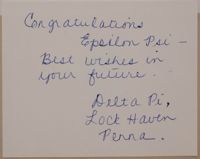 Congratulations
Epsilon Psi —
Best wishes in
your future.
Delta Pi,
Lock Haven
Penna.